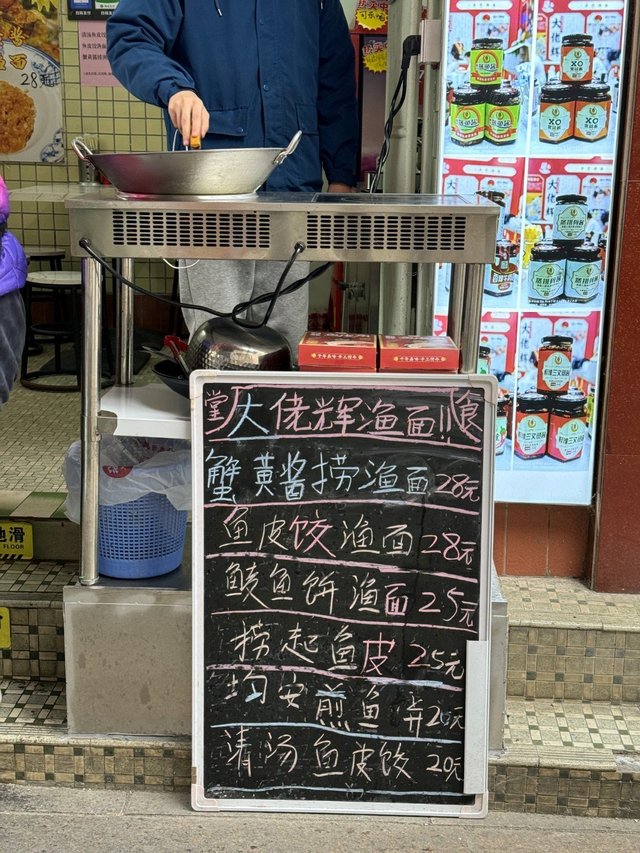 28元
大佬辉
XO
XO
XO
大佬辉
地滑
FLOOR
堂 大佬辉渔面!! 食
蟹黄酱捞渔面 28元
鱼皮饺渔面 28元
鲮鱼饼渔面 25元
捞起鱼皮 25元
均安煎鱼弁 20元
清汤鱼皮饺 20元